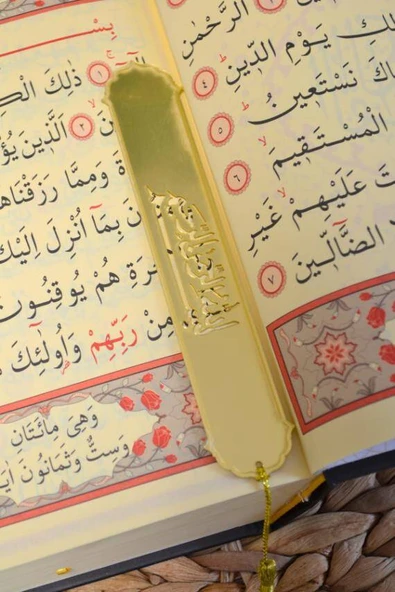 الرَّحْمٰنِ
لِكِ يَوْمِ الدّ۪ينِۜ ٤
اكَ نَسْتَع۪ينُۜ ٥
الْمُسْتَق۪يمَۙ ٦
تَ عَلَيْهِمْۙ غَيْرِ
الضَّٓالّ۪ينَ ٧
بِسْـ
١ ذٰلِكَ الْكـ
٢ اَلَّذ۪ينَ يُؤْ
ةَ وَمِمَّا رَزَقْنَاهُـ
نَ بِمَٓا اُنْزِلَ اِلَيْكَ
خِرَةِ هُمْ يُوقِنُونَ
مِنْ رَبِّهِمْ وَاُو۬لٰٓئِكَ
وَهِيَ مِائَتَانِ
وَسِتٌّ وَثَمَانُونَ اٰيَـ